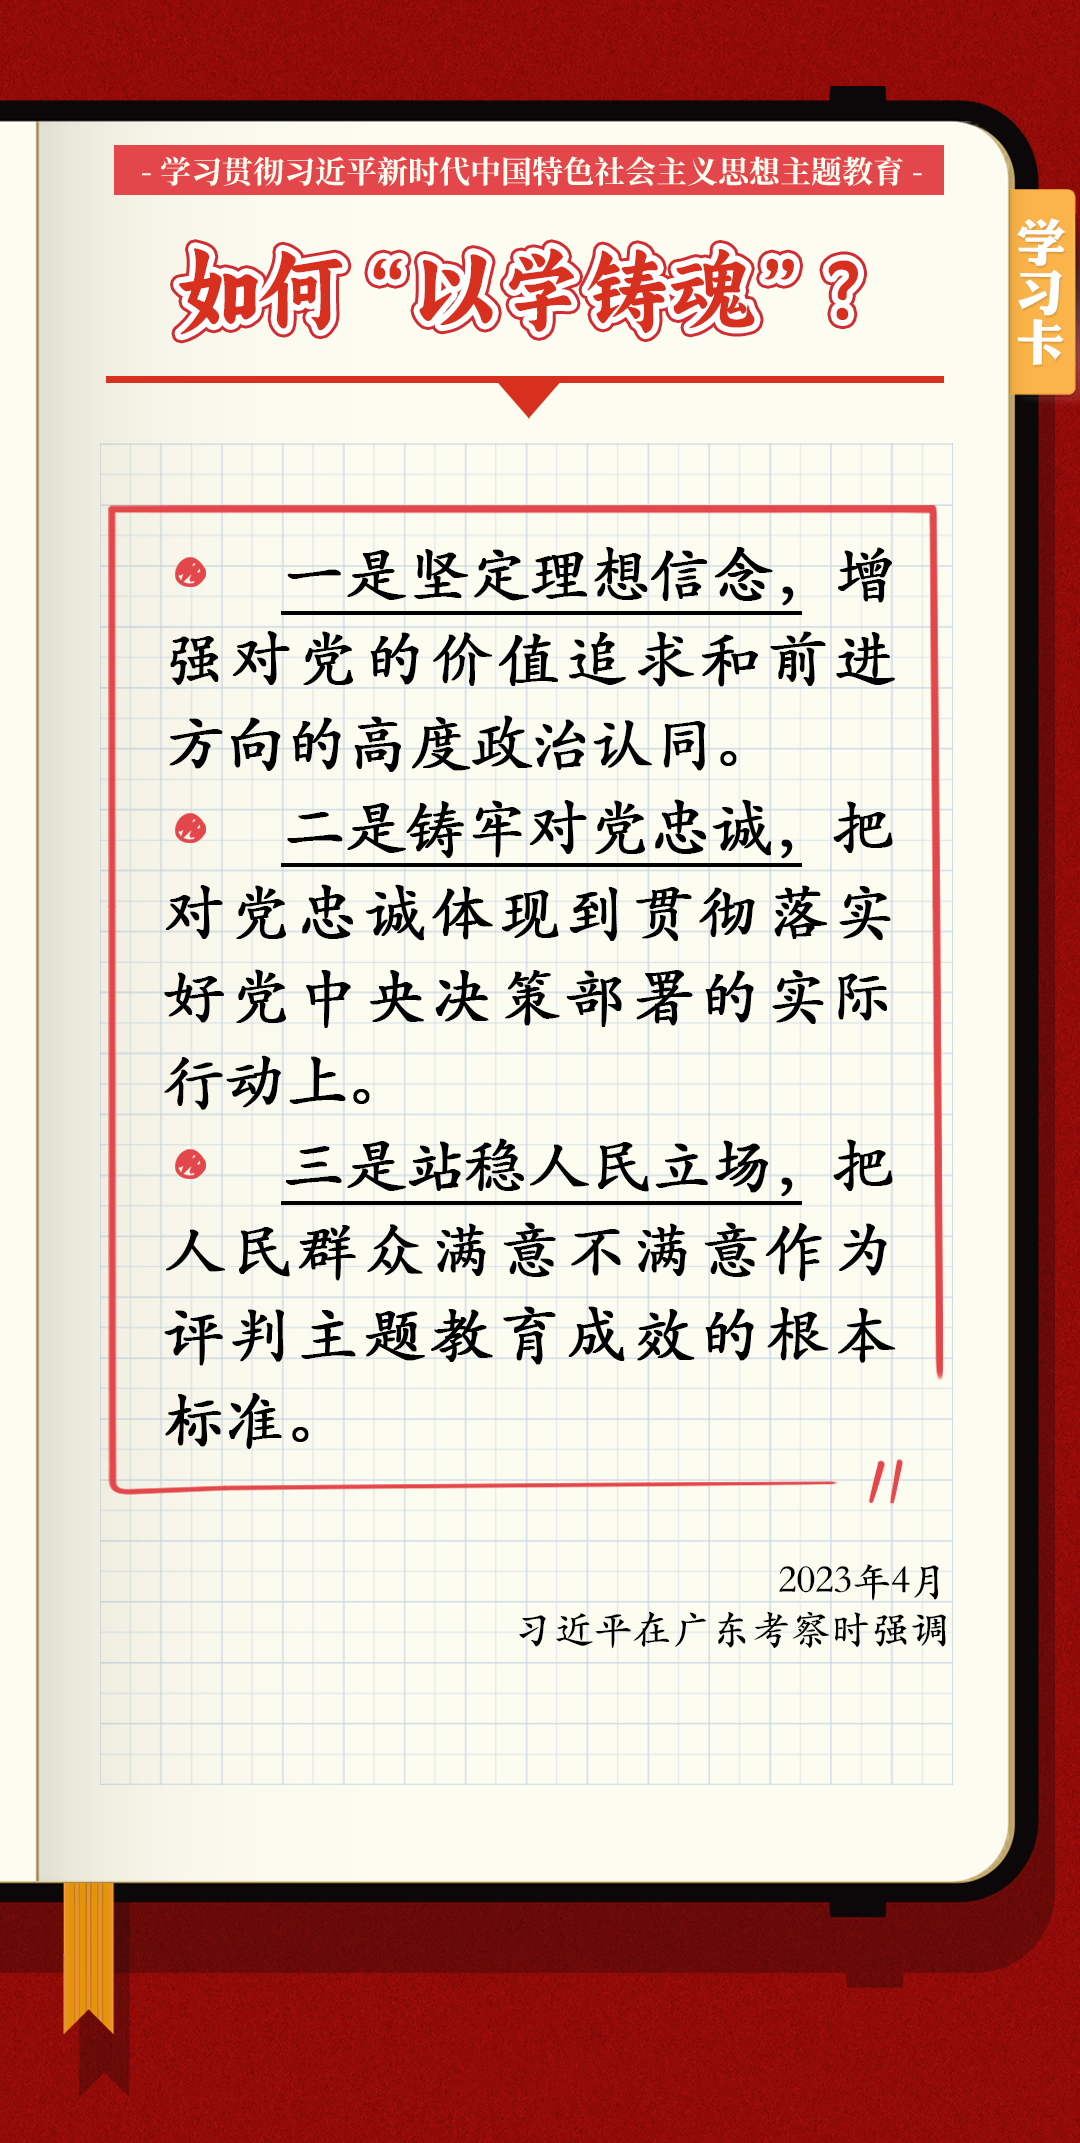 - 学习贯彻习近平新时代中国特色社会主义思想主题教育 -
学习卡
如何“以学铸魂”？
一是坚定理想信念，增
强对党的价值追求和前进
方向的高度政治认同。
二是铸牢对党忠诚，把
对党忠诚体现到贯彻落实
好党中央决策部署的实际
行动上。
三是站稳人民立场，把
人民群众满意不满意作为
评判主题教育成效的根本
标准。
2023年4月
习近平在广东考察时强调